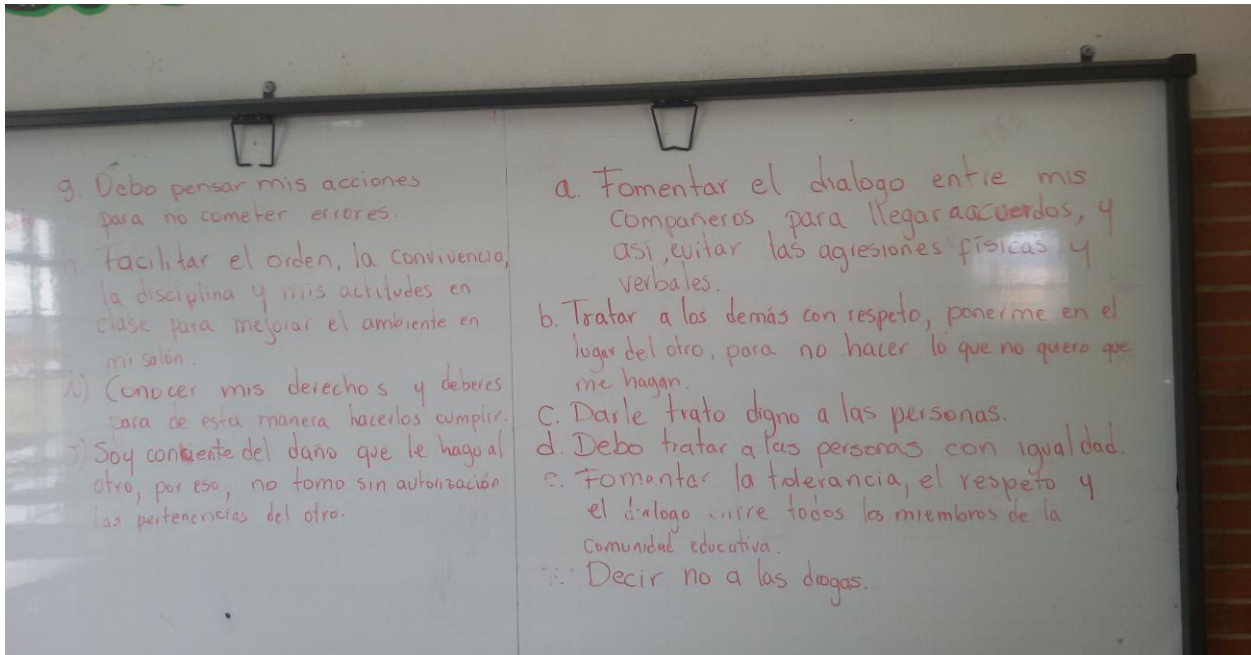 g. Debo pensar mis acciones
para no cometer errores.
h. Facilitar el orden, la convivencia,
la disciplina y mis actitudes en
clase para mejorar el ambiente en
mi salón.
Conocer mis derechos y deberes
para de esta manera hacerlos cumplir.
J) Soy conciente del daño que le hago al
otro, por eso, no tomo sin autorización
las pertenencias del otro.
a. Fomentar el dialogo entre mis
compañeros para llegar a acuerdos, y
así, evitar las agresiones físicas y
verbales.
b. Tratar a los demás con respeto, ponerme en el
lugar del otro, para no hacer lo que no quiero que
me hagan.
C. Darle trato digno a las personas.
d. Debo tratar a las personas con igualdad.
e. Fomentar la tolerancia, el respeto y
el dialogo entre todos los miembros de la
comunidad educativa.
Decir no a las drogas.